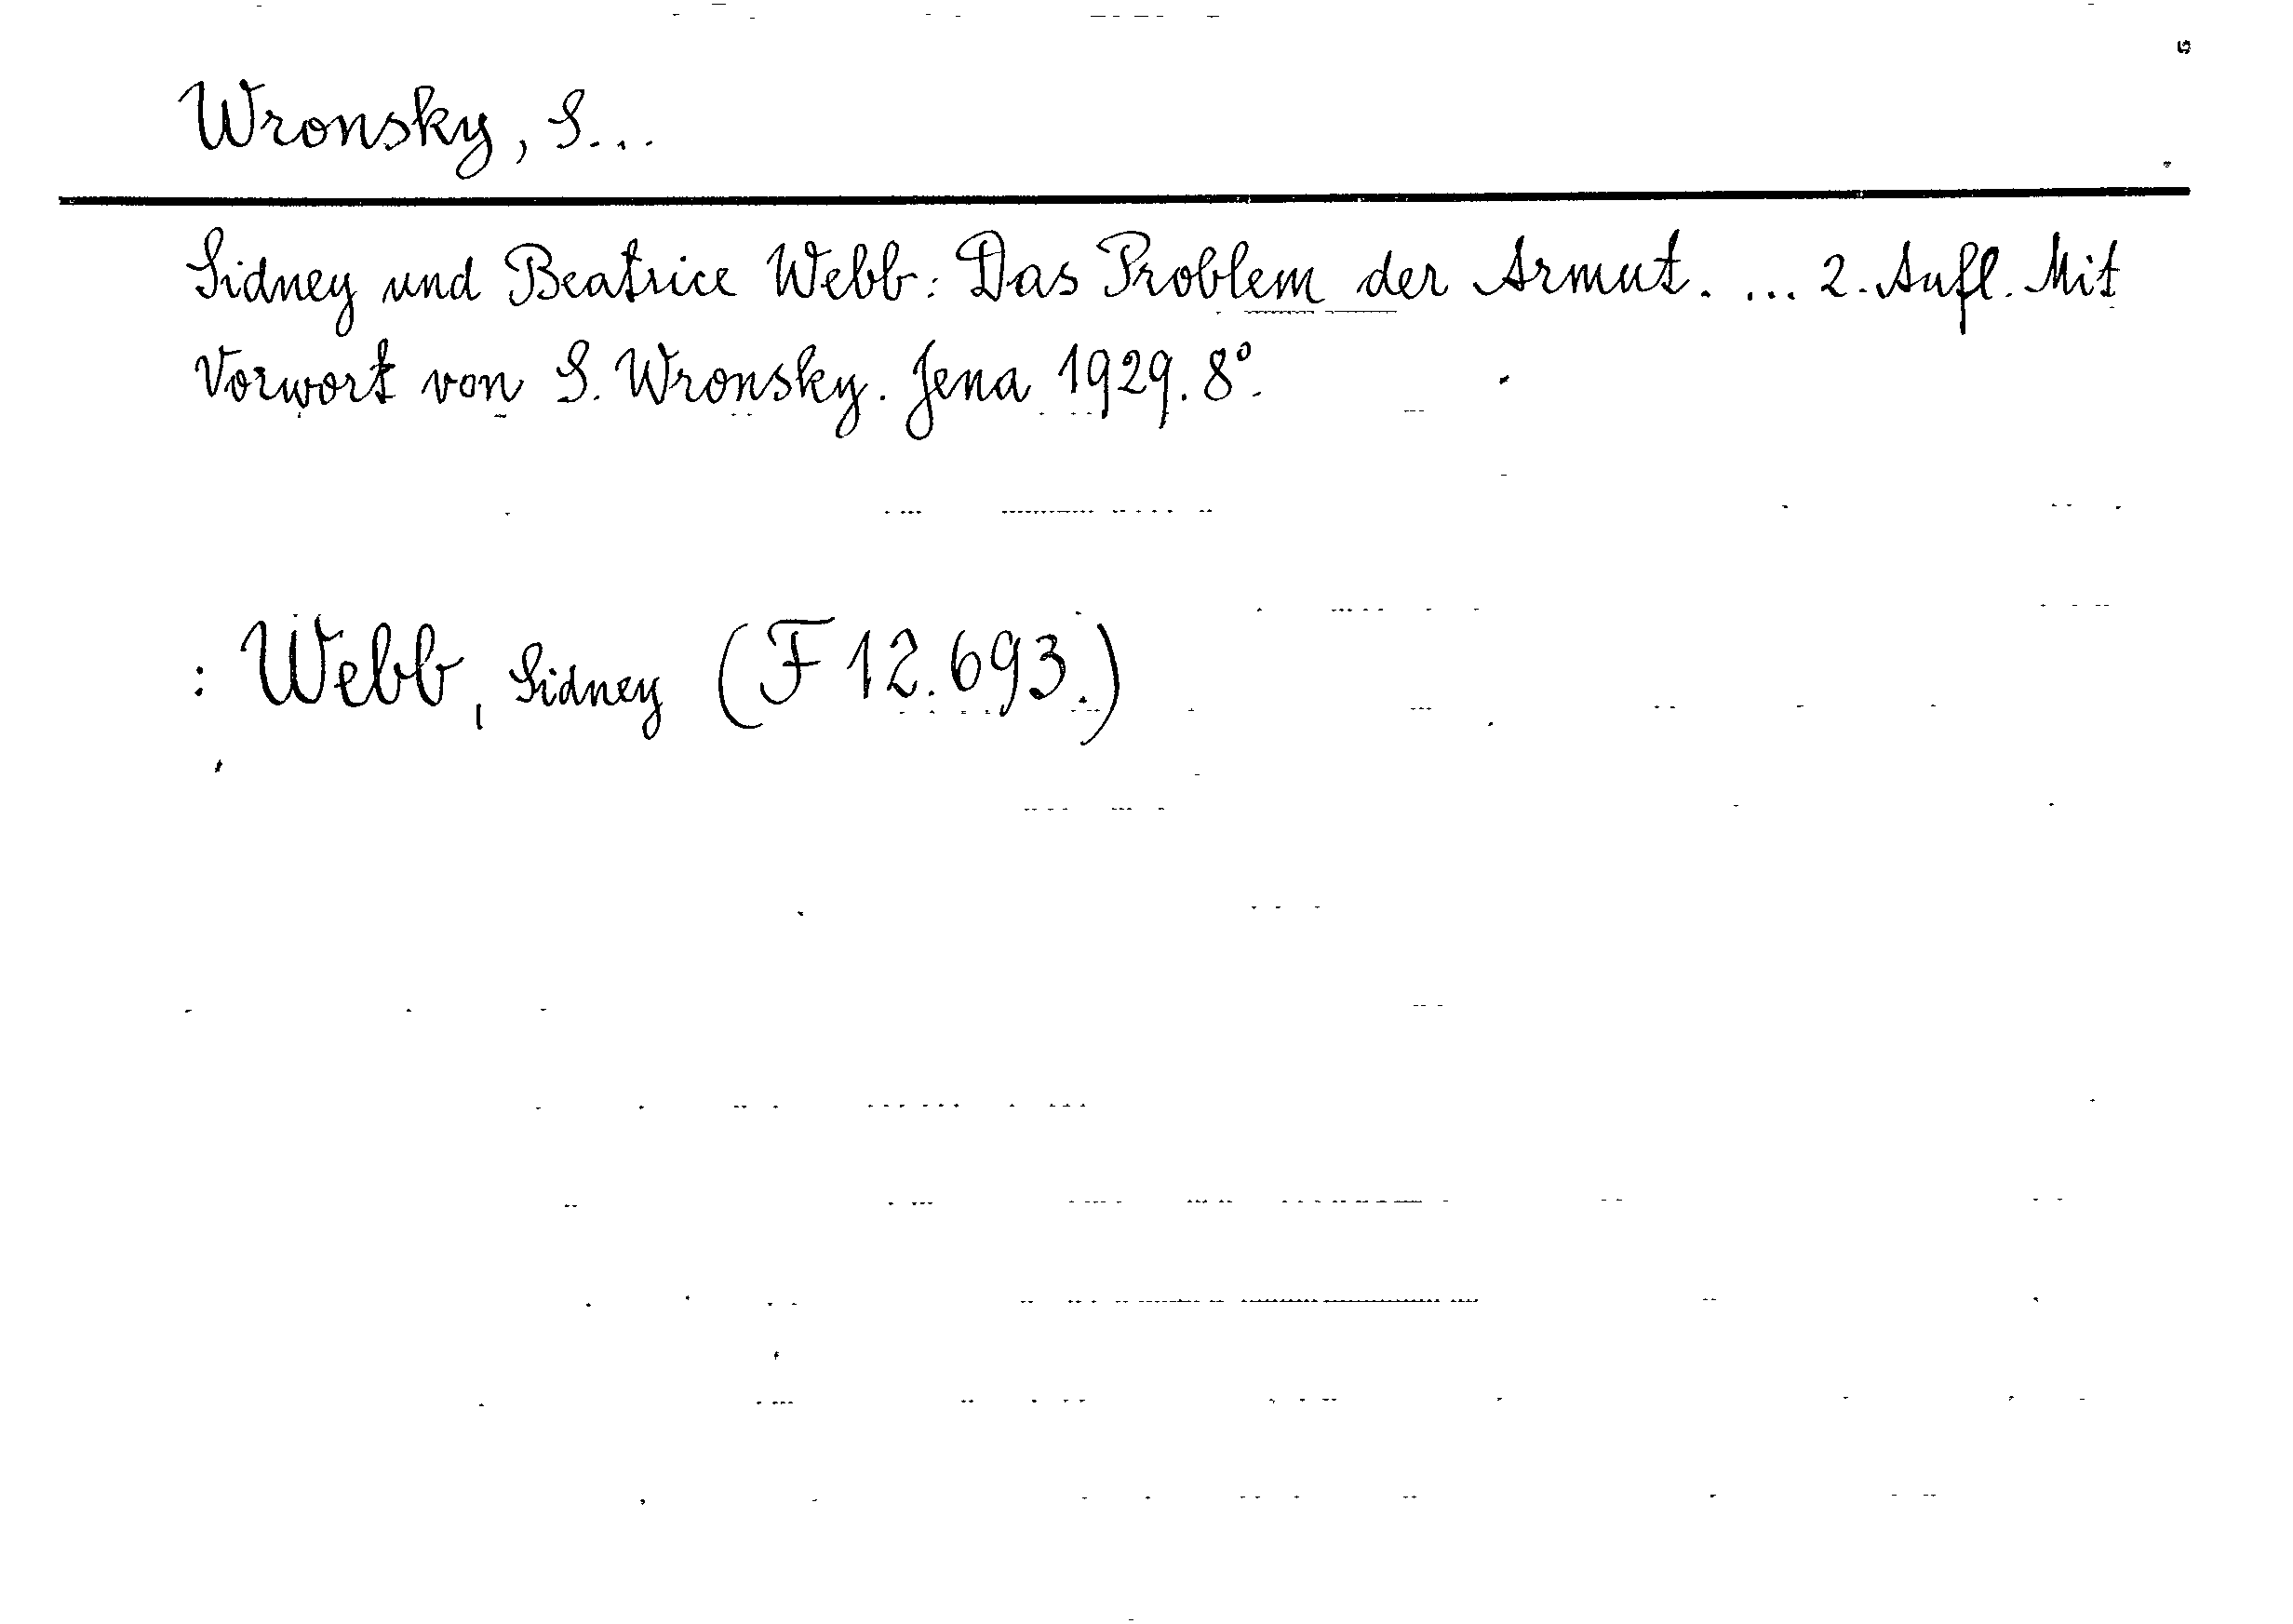 Wronsky, S...
Sidney und Beatrice Webb: Das Problem der Armut. ... 2. Aufl. Mit
Vorwort von S. Wronsky. Jena 1929. 8°.
: Webb, Sidney (F 12.693.)